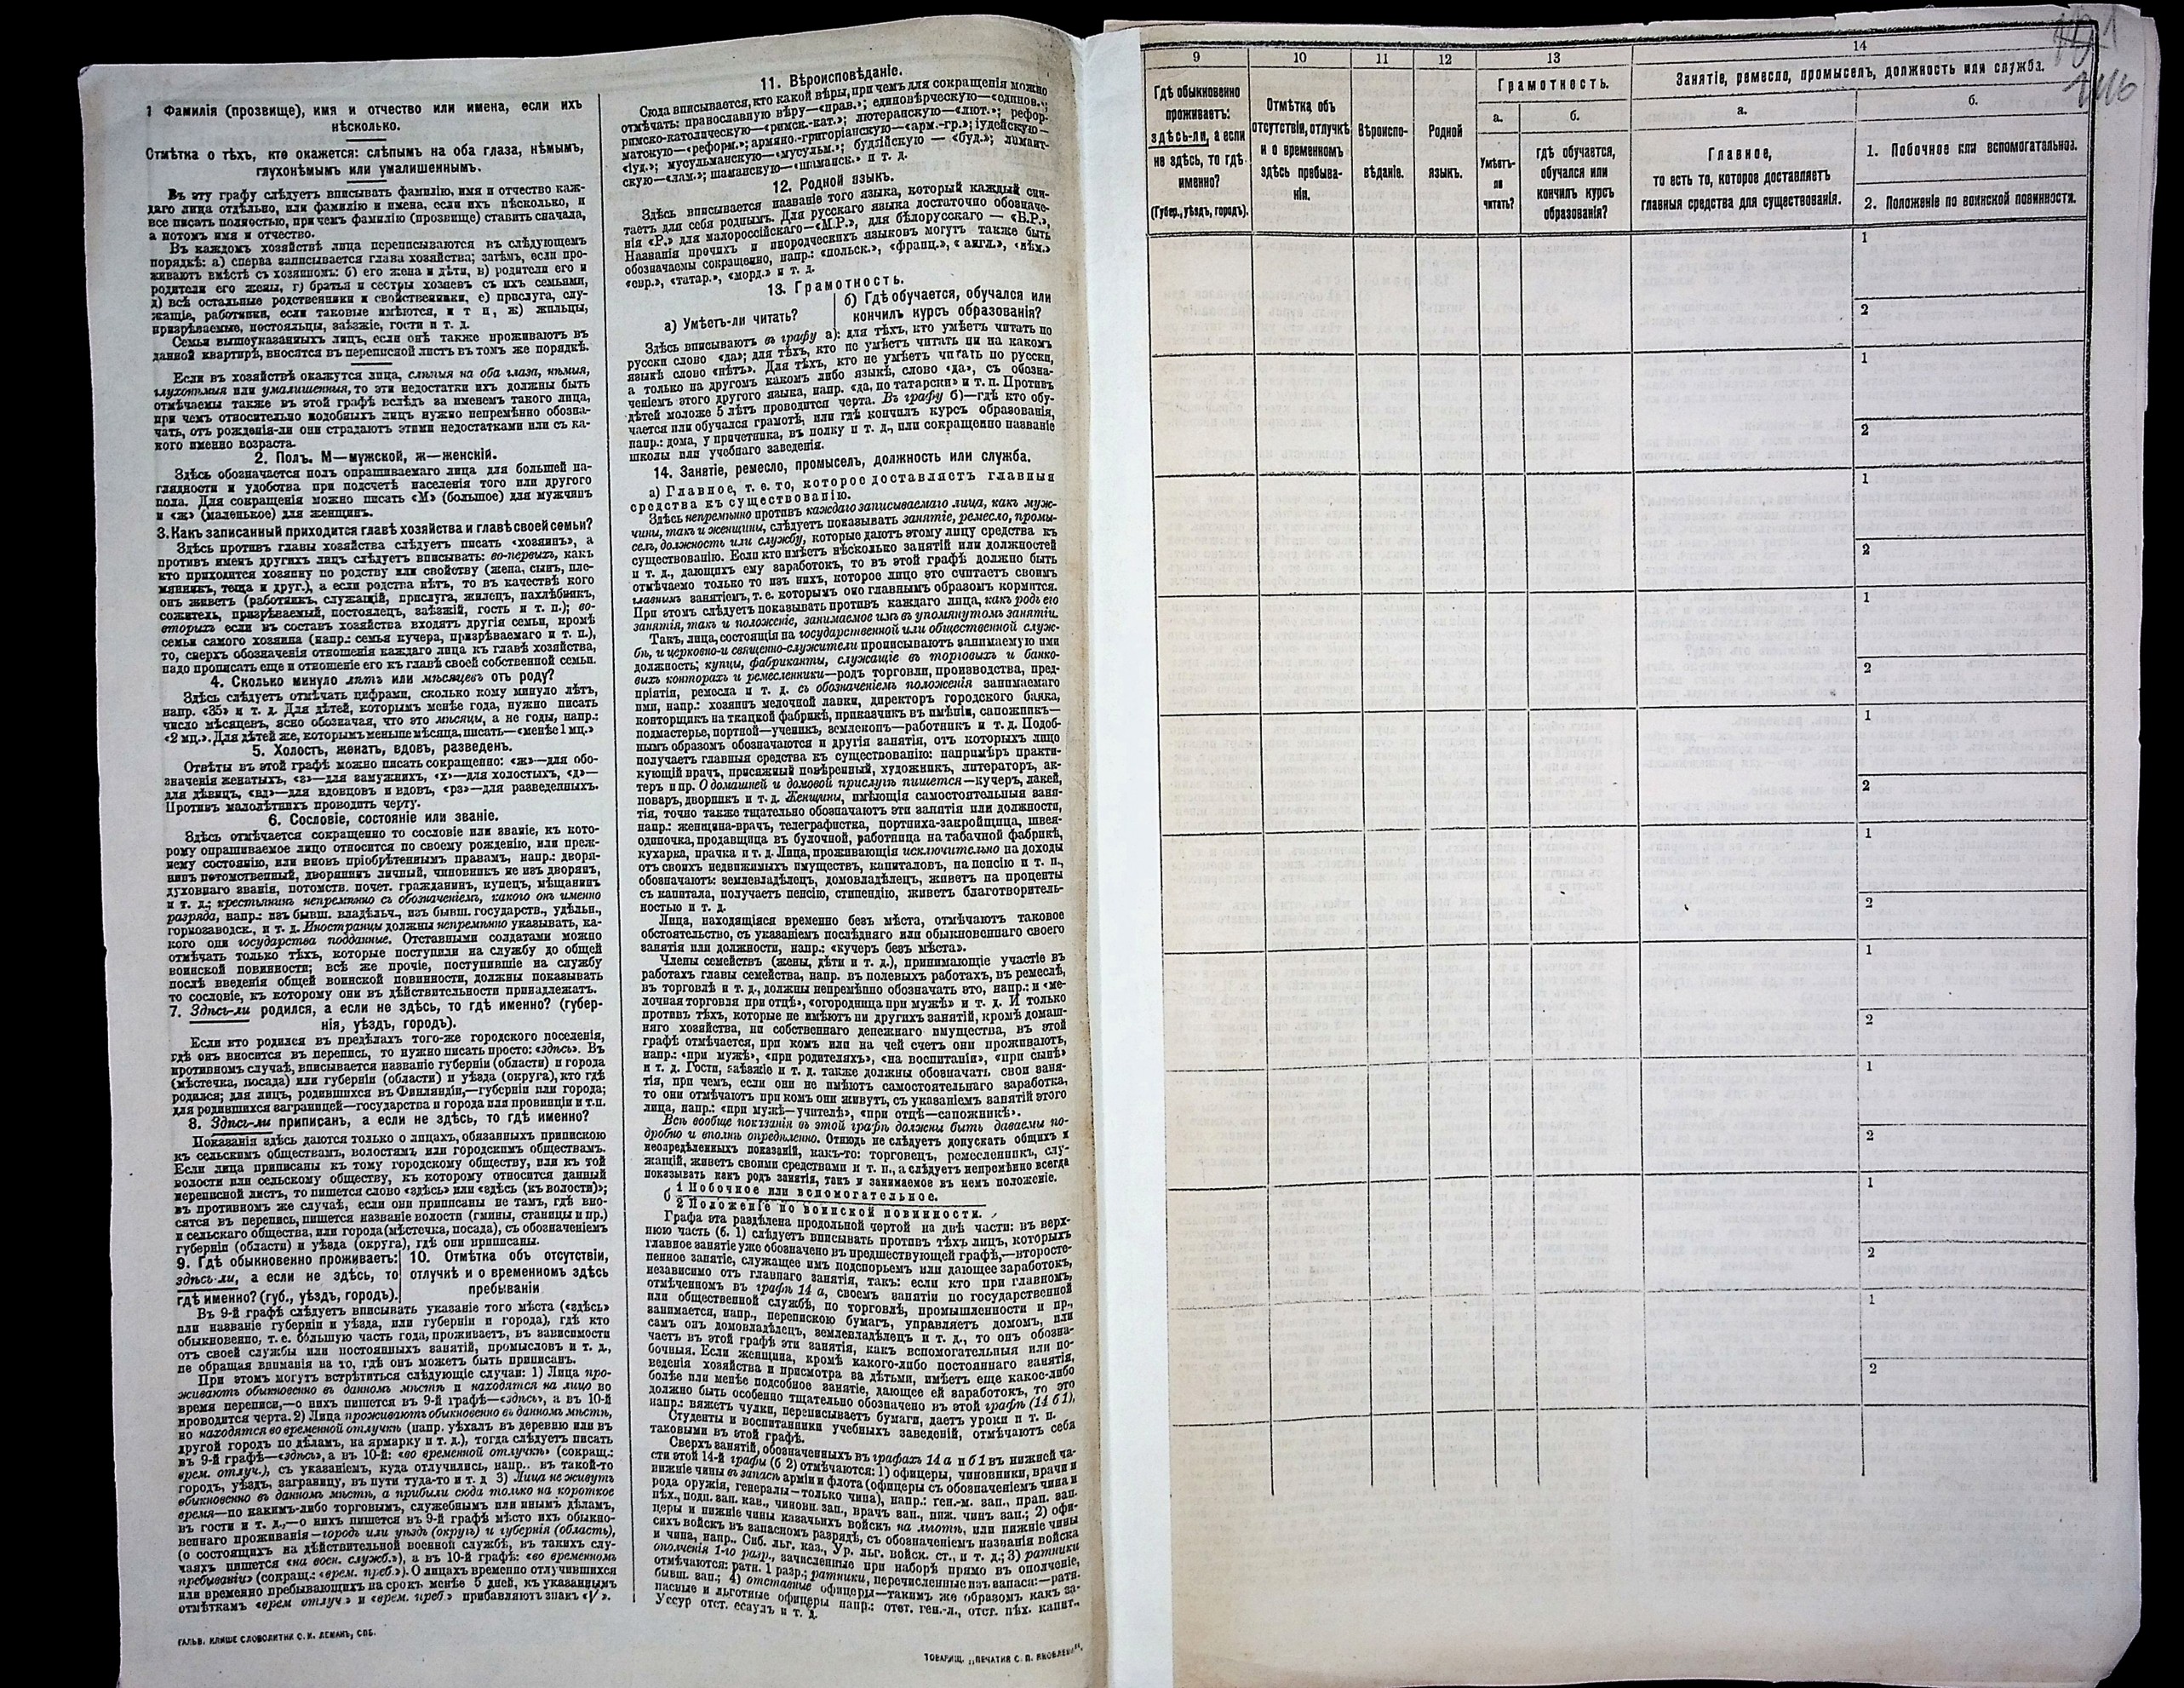 1 Фамилія (прозвище), имя и отчество или имена, если ихъ
нѣсколько.
Отмѣтка о тѣхъ, кто окажется: слѣпымъ на оба глаза, нѣмымъ,
глухонѣмымъ или умалишеннымъ.
Въ эту графу слѣдуетъ вписывать фамилію, имя и отчество каж-
даго лица отдѣльно, или фамилію и имена, если ихъ нѣсколько, и
все писать полностью, при чемъ фамилію (прозвище) ставить сначала,
а потомъ имя и отчество.
Въ каждомъ хозяйствѣ лица переписываются въ слѣдующемъ
порядкѣ: а) сперва записывается глава хозяйства; затѣмъ, если про-
живаютъ вмѣстѣ съ хозяиномъ: б) его жена и дѣти, в) родители его и
родители его жены, г) братья и сестры хозяевъ съ ихъ семьями,
д) всѣ остальные родственники и свойственники, е) прислуга, слу-
жащіе, работники, если таковые имѣются, и т п, ж) жильцы,
призрѣваемые, постояльцы, заѣзжіе, гости и т. д.
Семьи вышеуказанныхъ лицъ, если онѣ также проживаютъ въ
данной квартирѣ, вносятся въ переписной листъ въ томъ же порядкѣ.
Если въ хозяйствѣ окажутся лица, слѣпыя на оба глаза, нѣмыя,
глухонѣмыя или умалишенныя, то эти недостатки ихъ должны быть
отмѣчаемы также въ этой графѣ вслѣдъ за именемъ такого лица,
при чемъ относительно подобныхъ лицъ нужно непремѣнно обозна-
чать, отъ рожденія-ли они страдаютъ этими недостатками или съ ка-
кого именно возраста.
2. Полъ. М—мужской, ж—женскій.
Здѣсь обозначается полъ опрашиваемаго лица для большей на-
глядности и удобства при подсчетѣ населенія того или другого
пола. Для сокращенія можно писать «М» (большое) для мужчинъ
и «ж» (маленькое) для женщинъ.
3. Какъ записанный приходится главѣ хозяйства и главѣ своей семьи?
Здѣсь противъ главы хозяйства слѣдуетъ писать «хозяинъ», а
противъ именъ другихъ лицъ слѣдуетъ вписывать: во-первыхъ, какъ
кто приходится хозяину по родству или свойству (жена, сынъ, пле-
мянникъ, теща и друг.), а если родства нѣтъ, то въ качествѣ кого
онъ живетъ (работникъ, служащій, прислуга, жилецъ, нахлѣбникъ,
сожитель, призрѣваемый, постоялецъ, заѣзжій, гость и т. п.); во-
вторыхъ если въ составъ хозяйства входятъ другія семьи, кромѣ
семьи самого хозяина (напр.: семья кучера, призрѣваемаго и т. п.),
то, сверхъ обозначенія отношенія каждаго лица къ главѣ хозяйства,
надо прописать еще и отношеніе его къ главѣ своей собственной семьи.
4. Сколько минуло лѣтъ или мѣсяцевъ отъ роду?
Здѣсь слѣдуетъ отмѣчать цифрами, сколько кому минуло лѣтъ,
напр. «35» и т. д. Для дѣтей, которымъ менѣе года, нужно писать
число мѣсяцевъ, ясно обозначая, что это мѣсяцы, а не годы, напр.:
«2 мц.». Для дѣтей же, которымъ меньше мѣсяца, писать—«менѣе 1 мц.»
5. Холостъ, женатъ, вдовъ, разведенъ.
Отвѣты въ этой графѣ можно писать сокращенно: «ж»—для обо-
значенія женатыхъ, «з»—для замужнихъ, «х»—для холостыхъ, «д»—
для дѣвицъ, «вд»—для вдовцовъ и вдовъ, «рз»—для разведенныхъ.
Противъ малолѣтнихъ проводить черту.
6. Сословіе, состояніе или званіе.
Здѣсь отмѣчается сокращенно то сословіе или званіе, къ кото-
рому опрашиваемое лицо относится по своему рожденію, или преж-
нему состоянію, или вновь пріобрѣтеннымъ правамъ, напр.: дворя-
нинъ потомственный, дворянинъ личный, чиновникъ не изъ дворянъ,
духовнаго званія, потомств. почет. гражданинъ, купецъ, мѣщанинъ
и т. д.; крестьянинъ непремѣнно съ обозначеніемъ, какого онъ именно
разряда, напр.: изъ бывш. владѣльч., изъ бывш. государств., удѣльн.,
горнозаводск., и т. д. Иностранцы должны непремѣнно указывать, ка-
кого они государства подданные. Отставными солдатами можно
отмѣчать только тѣхъ, которые поступили на службу до общей
воинской повинности; всѣ же прочіе, поступившіе на службу
послѣ введенія общей воинской повинности, должны показывать
то сословіе, къ которому они въ дѣйствительности принадлежатъ.
7. Здѣсь-ли родился, а если не здѣсь, то гдѣ именно? (губер-
нія, уѣздъ, городъ).
Если кто родился въ предѣлахъ того-же городского поселенія,
гдѣ онъ вносится въ перепись, то нужно писать просто: «здѣсь». Въ
противномъ случаѣ, вписывается названіе губерніи (области) и города
(мѣстечка, посада) или губерніи (области) и уѣзда (округа), кто гдѣ
родился; для лицъ, родившихся въ Финляндіи,—губерніи или города;
для родившихся заграницей—государства и города или провинціи и т.п.
8. Здѣсь-ли приписанъ, а если не здѣсь, то гдѣ именно?
Показанія здѣсь даются только о лицахъ, обязанныхъ припискою
къ сельскимъ обществамъ, волостямъ или городскимъ обществамъ.
Если лица приписаны къ тому городскому обществу, или къ той
волости или сельскому обществу, къ которому относится данный
переписной листъ, то пишется слово «здѣсь» или «здѣсь (къ волости)»;
въ противномъ же случаѣ, если они приписаны не тамъ, гдѣ вно-
сятся въ перепись, пишется названіе волости (гмины, станицы и пр.)
и сельскаго общества, или города (мѣстечка, посада), съ обозначеніемъ
губерніи (области) и уѣзда (округа), гдѣ они приписаны.
9. Гдѣ обыкновенно проживаетъ:
здѣсь-ли, а если не здѣсь, то
гдѣ именно? (губ., уѣздъ, городъ).
10. Отмѣтка объ отсутствіи,
отлучкѣ и о временномъ здѣсь
пребываніи
Въ 9-й графѣ слѣдуетъ вписывать указаніе того мѣста («здѣсь»
или названіе губерніи и уѣзда, или губерніи и города), гдѣ кто
обыкновенно, т. е. бо́льшую часть года, проживаетъ, въ зависимости
отъ своей службы или постоянныхъ занятій, промысловъ и т. д.,
не обращая вниманія на то, гдѣ онъ можетъ быть приписанъ.
При этомъ могутъ встрѣтиться слѣдующіе случаи: 1) Лица про-
живаютъ обыкновенно въ данномъ мѣстѣ и находятся на лицо во
время переписи,—о нихъ пишется въ 9-й графѣ—«здѣсь», а въ 10-й
проводится черта. 2) Лица проживаютъ обыкновенно въ данномъ мѣстѣ,
но находятся во временной отлучкѣ (напр. уѣхалъ въ деревню или въ
другой городъ по дѣламъ, на ярмарку и т. д.), тогда слѣдуетъ писать
въ 9-й графѣ—«здѣсь», а въ 10-й: «во временной отлучкѣ» (сокращ.:
врем. отлуч.), съ указаніемъ, куда отлучились, напр.. въ такой-то
городъ, уѣздъ, заграницу, въ пути туда-то и т. д 3) Лица не живутъ
обыкновенно въ данномъ мѣстѣ, а прибыли сюда только на короткое
время—по какимъ-либо торговымъ, служебнымъ или инымъ дѣламъ,
въ гости и т. д.,—о нихъ пишется въ 9-й графѣ мѣсто ихъ обыкно-
веннаго проживанія—городъ или уѣздъ (округъ) и губернія (область),
(о состоящихъ на дѣйствительной военной службѣ, въ такихъ слу-
чаяхъ пишется «на воен. служб.»), а въ 10-й графѣ: «во временномъ
пребываніи» (сокращ.: «врем. преб.»). О лицахъ временно отлучившихся
или временно пребывающихъ на срокъ менѣе 5 дней, къ указаннымъ
отмѣткамъ «врем отлуч.» и «врем. преб.» прибавляютъ знакъ «V».
ГАЛЬВ. КЛИШЕ СЛОВОЛИТНИ О. И. ЛЕМАНЪ, СПБ.
11. Вѣроисповѣданіе.
Сюда вписывается, кто какой вѣры, при чемъ для сокращенія можно
отмѣчать: православную вѣру—«прав.»; единовѣрческую—«единов.»;
римско-католическую—«римск.-кат.»; лютеранскую—«лют.»; рефор-
матскую—«реформ.»; армяно-григоріанскую—«арм.-гр.»; іудейскую—
«іуд.»; мусульманскую—«мусульм.»; буддійскую — «буд.»; ламаит-
скую—«лам.»; шаманскую—«шаманск.» и т. д.
12. Родной языкъ.
Здѣсь вписывается названіе того языка, который каждый счи-
таетъ для себя роднымъ. Для русскаго языка достаточно обозначе-
нія «Р.» для малороссійскаго—«М.Р.», для бѣлорусскаго — «Б.Р.».
Названія прочихъ и инородческихъ языковъ могутъ также быть
обозначаемы сокращенно, напр.: «польск.», «франц.», «англ.», «нѣм.»
«евр.», «татар.», «морд.» и т. д.
13. Грамотность.
а) Умѣетъ-ли читать?
б) Гдѣ обучается, обучался или
кончилъ курсъ образованія?
Здѣсь вписываютъ въ графу а): для тѣхъ, кто умѣетъ читать по
русски слово «да»; для тѣхъ, кто не умѣетъ читать ни на какомъ
языкѣ слово «нѣтъ». Для тѣхъ, кто не умѣетъ читать по русски,
а только на другомъ какомъ либо языкѣ, слово «да», съ обозна-
ченіемъ этого другого языка, напр. «да, по татарски» и т. п. Противъ
дѣтей моложе 5 лѣтъ проводится черта. Въ графу б)—гдѣ кто обу-
чается или обучался грамотѣ, или гдѣ кончилъ курсъ образованія,
напр.: дома, у причетника, въ полку и т. д., или сокращенно названіе
школы или учебнаго заведенія.
14. Занятіе, ремесло, промыселъ, должность или служба.
а) Главное, т. е. то, которое доставляетъ главныя
средства къ существованію.
Здѣсь непремѣнно противъ каждаго записываемаго лица, какъ муж-
чины, такъ и женщины, слѣдуетъ показывать занятіе, ремесло, промы-
селъ, должность или службу, которые даютъ этому лицу средства къ
существованію. Если кто имѣетъ нѣсколько занятій или должностей
и т. д., дающихъ ему заработокъ, то въ этой графѣ должно быть
отмѣчаемо только то изъ нихъ, которое лицо это считаетъ своимъ
главнымъ занятіемъ, т. е. которымъ оно главнымъ образомъ кормится.
При этомъ слѣдуетъ показывать противъ каждаго лица, какъ родъ его
занятія, такъ и положеніе, занимаемое имъ въ упомянутомъ занятіи.
Такъ, лица, состоящія на государственной или общественной служ-
бѣ, и церковно-и священно-служители прописываютъ занимаемую ими
должность; купцы, фабриканты, служащіе въ торговыхъ и банко-
выхъ конторахъ и ремесленники—родъ торговли, производства, пред-
пріятія, ремесла и т. д. съ обозначеніемъ положенія занимаемаго
ими, напр.: хозяинъ мелочной лавки, директоръ городского банка,
конторщикъ на ткацкой фабрикѣ, приказчикъ въ имѣніи, сапожникъ—
подмастерье, портной—ученикъ, землекопъ—работникъ и т. д. Подоб-
нымъ образомъ обозначаются и другія занятія, отъ которыхъ лицо
получаетъ главныя средства къ существованію: напримѣръ практи-
кующій врачъ, присяжный повѣренный, художникъ, литераторъ, ак-
теръ и пр. О домашней и домовой прислугѣ пишется—кучеръ, лакей,
поваръ, дворникъ и т. д. Женщины, имѣющія самостоятельныя заня-
тія, точно также тщательно обозначаютъ эти занятія или должности,
напр.: женщина-врачъ, телеграфистка, портниха-закройщица, швея-
одиночка, продавщица въ булочной, работница на табачной фабрикѣ,
кухарка, прачка и т. д. Лица, проживающія исключительно на доходы
отъ своихъ недвижимыхъ имуществъ, капиталовъ, на пенсію и т. п.,
обозначаютъ: землевладѣлецъ, домовладѣлецъ, живетъ на проценты
съ капитала, получаетъ пенсію, стипендію, живетъ благотворитель-
ностью и т. д.
Лица, находящіяся временно безъ мѣста, отмѣчаютъ таковое
обстоятельство, съ указаніемъ послѣдняго или обыкновеннаго своего
занятія или должности, напр.: «кучеръ безъ мѣста».
Члены семействъ (жены, дѣти и т. д.), принимающіе участіе въ
работахъ главы семейства, напр. въ полевыхъ работахъ, въ ремеслѣ,
въ торговлѣ и т. д., должны непремѣнно обозначать это, напр.: и «ме-
лочная торговля при отцѣ», «огородница при мужѣ» и т. д. И только
противъ тѣхъ, которые не имѣютъ ни другихъ занятій, кромѣ домаш-
няго хозяйства, ни собственнаго денежнаго имущества, въ этой
графѣ отмѣчается, при комъ или на чей счетъ они проживаютъ,
напр.: «при мужѣ», «при родителяхъ», «на воспитаніи», «при сынѣ»
и т. д. Гости, заѣзжіе и т. д. также должны обозначать свои заня-
тія, при чемъ, если они не имѣютъ самостоятельнаго заработка,
то они отмѣчаютъ при комъ они живутъ, съ указаніемъ занятій этого
лица, напр.: «при мужѣ—учителѣ», «при отцѣ—сапожникѣ».
Всѣ вообще показанія въ этой графѣ должны быть даваемы по-
дробно и вполнѣ опредѣленно. Отнюдь не слѣдуетъ допускать общихъ и
неопредѣленныхъ показаній, какъ-то: торговецъ, ремесленникъ, слу-
жащій, живетъ своими средствами и т. п., а слѣдуетъ непремѣнно всегда
показывать какъ родъ занятія, такъ и занимаемое въ немъ положеніе.
б 1 Побочное или вспомогательное.
2 Положеніе по воинской повинности.
Графа эта раздѣлена продольной чертой на двѣ части: въ верх-
нюю часть (б. 1) слѣдуетъ вписывать противъ тѣхъ лицъ, которыхъ
главное занятіе уже обозначено въ предшествующей графѣ,—второсте-
пенное занятіе, служащее имъ подспорьемъ или дающее заработокъ,
независимо отъ главнаго занятія, такъ: если кто при главномъ,
отмѣченномъ въ графѣ 14 а, своемъ занятіи по государственной
или общественной службѣ, по торговлѣ, промышленности и пр.,
занимается, напр., перепискою бумагъ, управляетъ домомъ, или
самъ онъ домовладѣлецъ, землевладѣлецъ и т. д., то онъ обозна-
чаетъ въ этой графѣ эти занятія, какъ вспомогательныя или по-
бочныя. Если женщина, кромѣ какого-либо постояннаго занятія,
веденія хозяйства и присмотра за дѣтьми, имѣетъ еще какое-либо
болѣе или менѣе подсобное занятіе, дающее ей заработокъ, то это
должно быть особенно тщательно обозначено въ этой графѣ (14 б 1),
напр.: вяжетъ чулки, переписываетъ бумаги, даетъ уроки и т. п.
Студенты и воспитанники учебныхъ заведеній, отмѣчаютъ себя
таковыми въ этой графѣ.
Сверхъ занятій, обозначенныхъ въ графахъ 14 а и б 1 въ нижней ча-
сти этой 14-й графы (б 2) отмѣчаются: 1) офицеры, чиновники, врачи и
нижніе чины въ запасѣ арміи и флота (офицеры съ обозначеніемъ чина и
рода оружія, генералы—только чина), напр.: ген.-м. зап., прап. зап.
пѣх., подп. зап. кав., чиновн. зап., врачъ зап., ниж. чинъ зап.; 2) офи-
церы и нижніе чины казачьихъ войскъ на льготѣ, или нижніе чины
сихъ войскъ въ запасномъ разрядѣ, съ обозначеніемъ названія войска
и чина, напр.. Сиб. льг. каз., Ур. льг. войск. ст., и т. д.; 3) ратники
ополченія 1-го разр., зачисленные при наборѣ прямо въ ополченіе,
отмѣчаются: ратн. 1 разр.; ратники, перечисленные изъ запаса:—ратн.
бывш. зап.; 4) отставные офицеры—такимъ же образомъ какъ за-
пасные и льготные офицеры напр.: отст. ген.-л., отст. пѣх. капит.,
Уссур отст. есаулъ и т. д.
ТОВАРИЩ. „ПЕЧАТНЯ С. П. ЯКОВЛЕВА“.
9
10
11
12
13
14
Гдѣ обыкновенно
проживаетъ:
здѣсь-ли, а если
не здѣсь, то гдѣ
именно?
(Губер., уѣздъ, городъ).
Отмѣтка объ
отсутствіи, отлучкѣ
и о временномъ
здѣсь пребыва-
ніи.
Вѣроиспо-
вѣданіе.
Родной
языкъ.
Грамотность.
а.
Умѣетъ-
ли
читать?
б.
гдѣ обучается,
обучался или
кончилъ курсъ
образованія?
Занятіе, ремесло, промыселъ, должность или служба.
а.
Главное,
то есть то, которое доставляетъ
главныя средства для существованія.
б.
1. Побочное или вспомогательное.
2. Положеніе по воинской повинности.
1
2
1
2
1
2
1
2
1
2
1
2
1
2
1
2
1
2
1
2